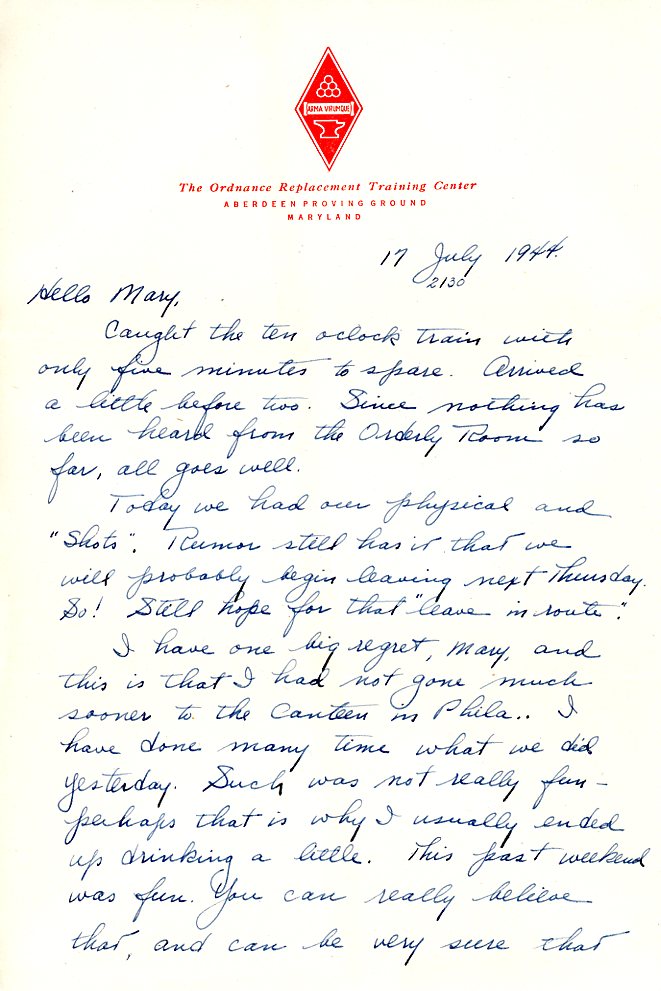 ARMA VIRUMQUE
The Ordnance Replacement Training Center
ABERDEEN PROVING GROUND
MARYLAND
17 July 1944.
2130
Hello Mary,
Caught the ten oclock train with
only five minutes to spare. Arrived
a little before two. Since nothing has
been heard from the Orderly Room so
far, all goes well.
Today we had our physical and
"Shots". Rumor still has it that we
will probably begin leaving next Thursday.
So! Still hope for that "leave in route".
I have one big regret, Mary, and
this is that I had not gone much
sooner to the Canteen in Phila.. I
have done many time what we did
yesterday. Such was not really fun -
perhaps that is why I usually ended
up drinking a little. This past weekend
was fun. You can really believe
that, and can be very sure that